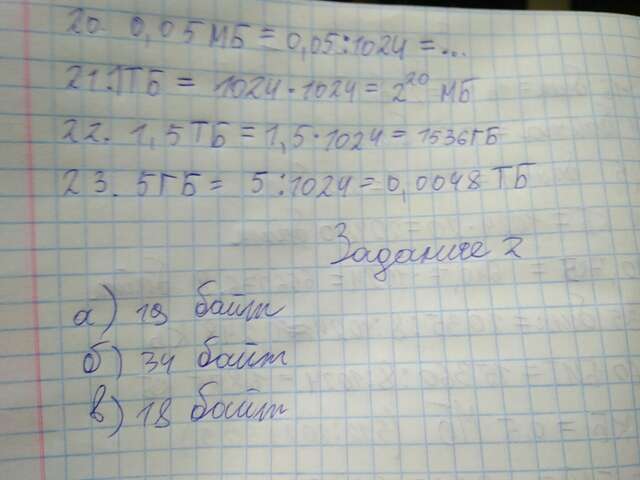 20. 0,05 МБ = 0,05:1024 = ...
21. 1ТБ = 1024·1024 = 2²⁰ МБ
22. 1,5 ТБ = 1,5·1024 = 1536 ГБ
23. 5 ГБ = 5:1024 = 0,0048 ТБ
Задание 2
а) 19 байт
б) 34 байт
в) 18 байт